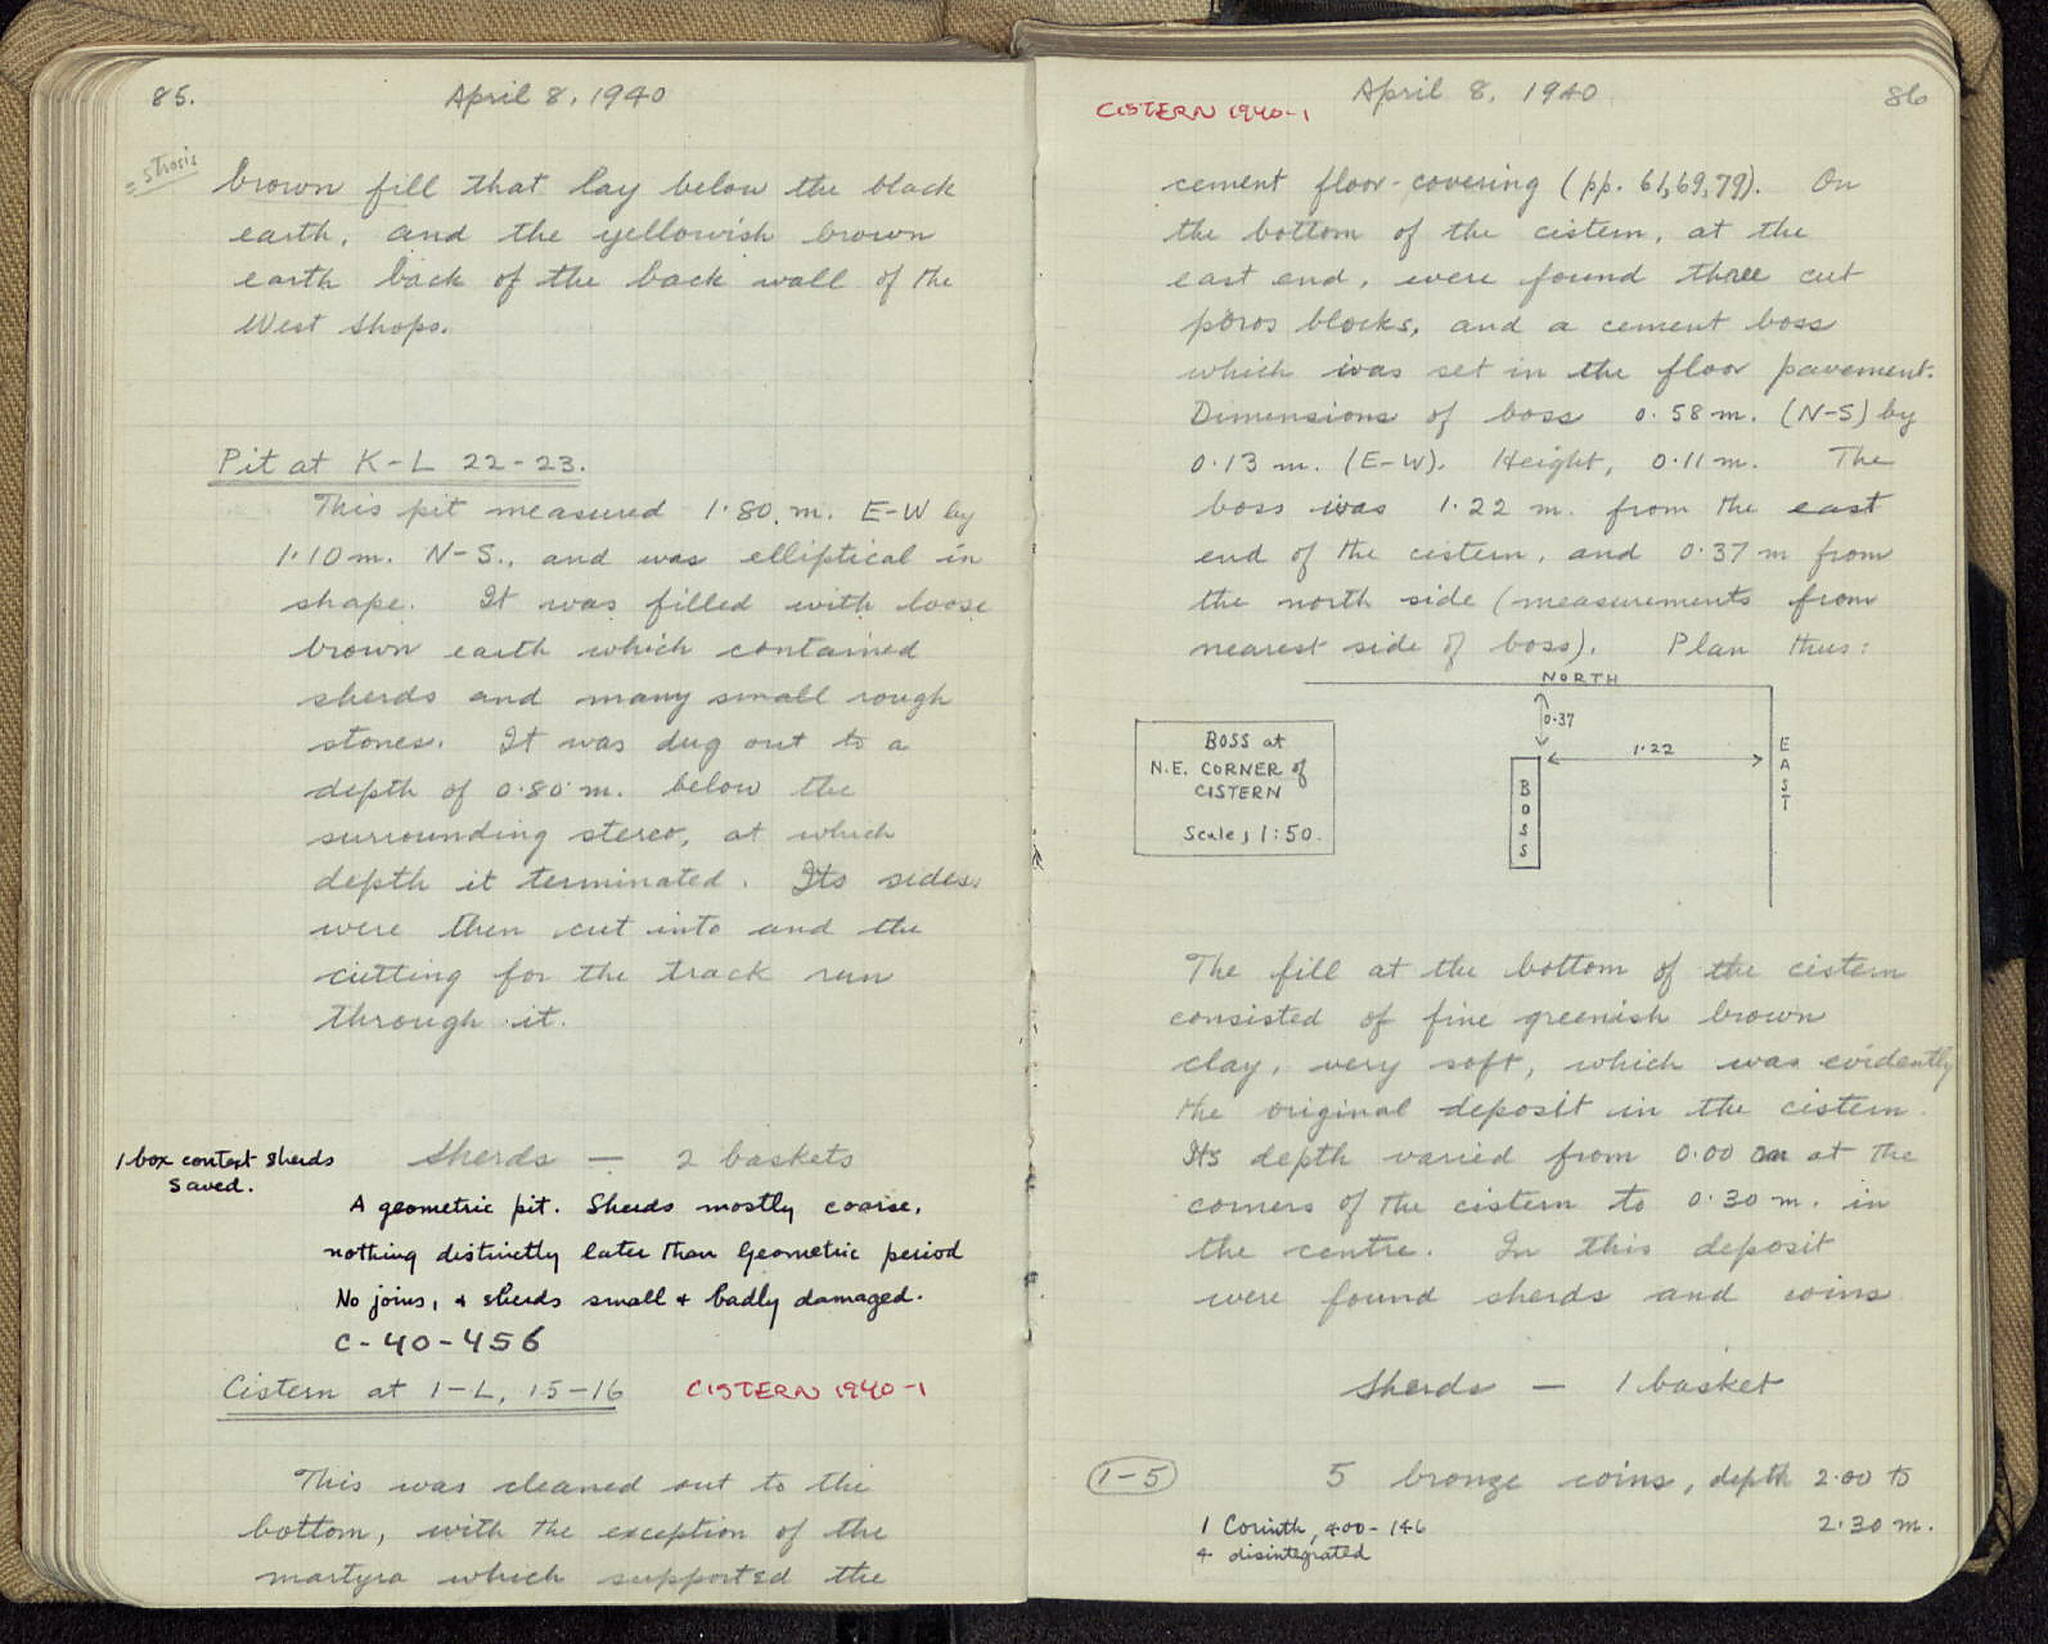 85.
April 8, 1940
= strosis
brown fill that lay below the black
earth, and the yellowish brown
earth back of the back wall of the
West Shops.
Pit at K-L 22-23.
This pit measured 1.80 m. E-W by
1.10 m. N-S., and was elliptical in
shape. It was filled with loose
brown earth which contained
sherds and many small rough
stones. It was dug out to a
depth of 0.80 m. below the
surrounding stereo, at which
depth it terminated. Its sides
were then cut into and the
cutting for the track run
through it.
1 box context sherds
saved.
Sherds — 2 baskets
A geometric pit. Sherds mostly coarse,
nothing distinctly later than Geometric period
No joins, & sherds small & badly damaged.
C-40-456
Cistern at I-L, 15-16 CISTERN 1940-1
This was cleaned out to the
bottom, with the exception of the
martyra which supported the
CISTERN 1940-1
April 8, 1940
86
cement floor-covering (pp. 61, 69, 79). On
the bottom of the cistern, at the
east end, were found three cut
poros blocks, and a cement boss
which was set in the floor pavement.
Dimensions of boss 0.58 m. (N-S) by
0.13 m. (E-W). Height, 0.11 m. The
boss was 1.22 m. from the east
end of the cistern, and 0.37 m from
the north side (measurements from
nearest side of boss). Plan thus:
NORTH
0.37
1.22
EAST
BOSS
BOSS at
N.E. CORNER of
CISTERN
Scale, 1:50.
The fill at the bottom of the cistern
consisted of fine greenish brown
clay, very soft, which was evidently
the original deposit in the cistern.
Its depth varied from 0.00 m at the
corners of the cistern to 0.30 m. in
the centre. In this deposit
were found sherds and coins
Sherds — 1 basket
1-5
5 bronze coins, depth 2.00 to
2.30 m.
1 Corinth, 400-146
4 disintegrated